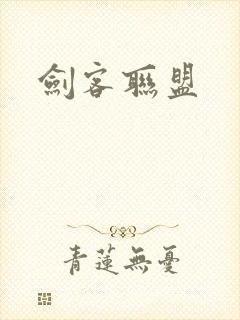 劍客聯盟
青蓮無憂